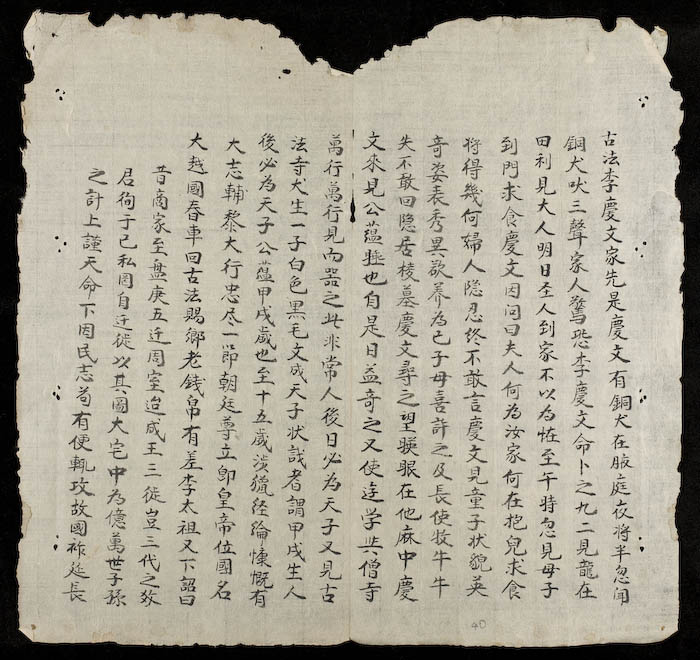 古法李慶文家先是慶文有銅犬在腋庭夜將半忽闻
銅犬吠三聲家人驚恐李慶文命卜之九二見龍在
田利見大人明日圣人到家不以為怪至午時忽見母子
到門求食慶文因问曰夫人何為汝家何在抱兒求食
將得幾何婦人隐忍终不敢言慶文見童子状貌英
奇姿表秀異欲养為己子母喜許之及長使牧牛牛
失不敢回隐居棱墓慶文尋之望睽眼在他麻中慶
文來見公蕴
也自是日益奇之又使
学
僧寺
萬行萬行見而器之此非常人後日必為天子又見古
法寺犬生一子白色黑毛文成天子状識者謂甲戌生人
後必為天子公蕴甲戌歲也至十五歲
猟经綸慷慨有
大志輔黎大行忠尽一節朝廷尊立即皇帝位國名
大越國春車回古法賜鄉老錢帛有差李太祖又下詔曰
昔商家至盘庚五迁周室迨成王三徙豈三代之
君徇于己私罔自迁徙以其圖大宅中為億萬世子孫
之計上謹天命下因民志苟有便輒攻故國祚延長
40